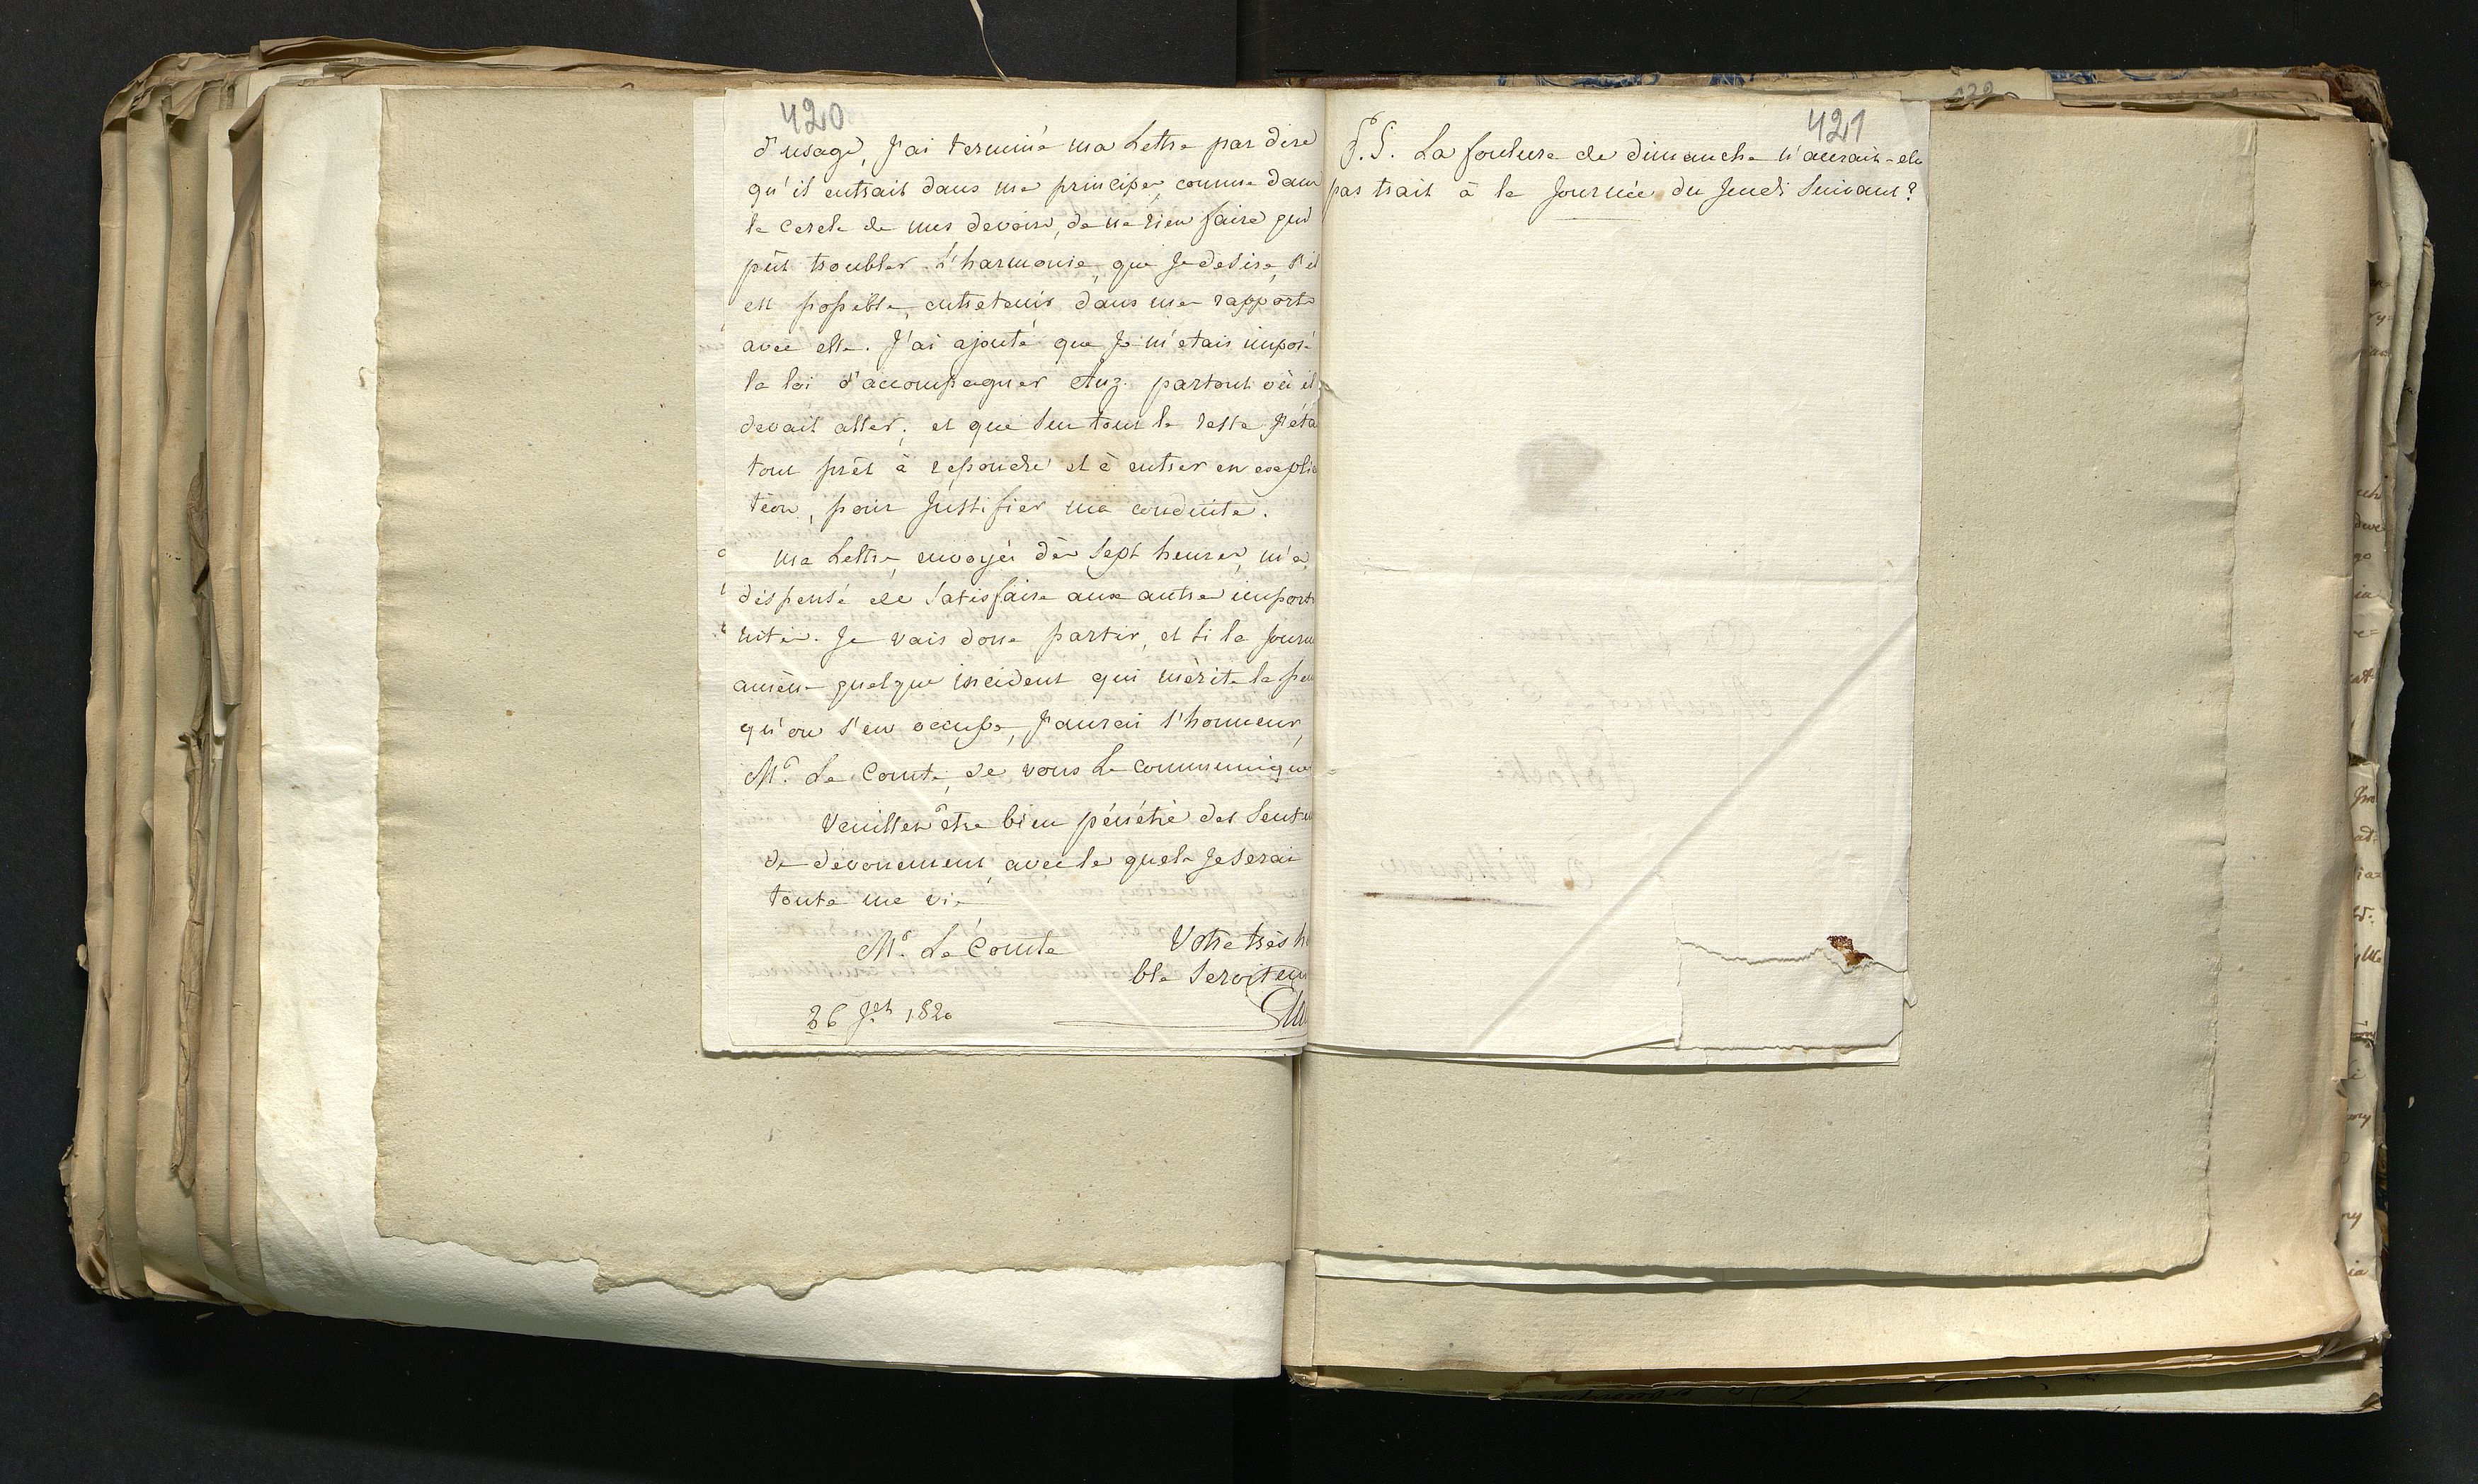 420
d'usage, J'ai terminé ma Lettre par dire
qu'il entrait dans me principes, comme dans
le cercle de mes devoirs, de ne rien faire qui
pût troubler l'harmonie, que Je desire, s'il
est possible, entretenir dans mes rapports
avec elle. J'ai ajouté que Je m'etais imposé
la loi d'accompagner Aug. partout où il
devait aller; et que sur tout le reste J'éta
tout prêt à repondre et à entrer en explica
tion, pour Justifier ma conduite.
ma Lettre, envoyée dès Sept heures, m'a
dispensé de Satisfaire aux autres import
nités. Je vais donc partir, et si la Journ
amène quelque incident qui mérite la pei
qu'on s'en occupe, J'aurai l'honneur,
Mr. Le Comte, de vous Le communique
Veuillez être bien pénétré des Senti
de devouement, avec lesquels Je serai
toute ma vie
Mr. Le Comte
Votre très h
ble Serviteur
26 1820
421
P.S. La foulure de dimanche n'aurait-elle
pas trait à la Journée du Jeudi Suivant?